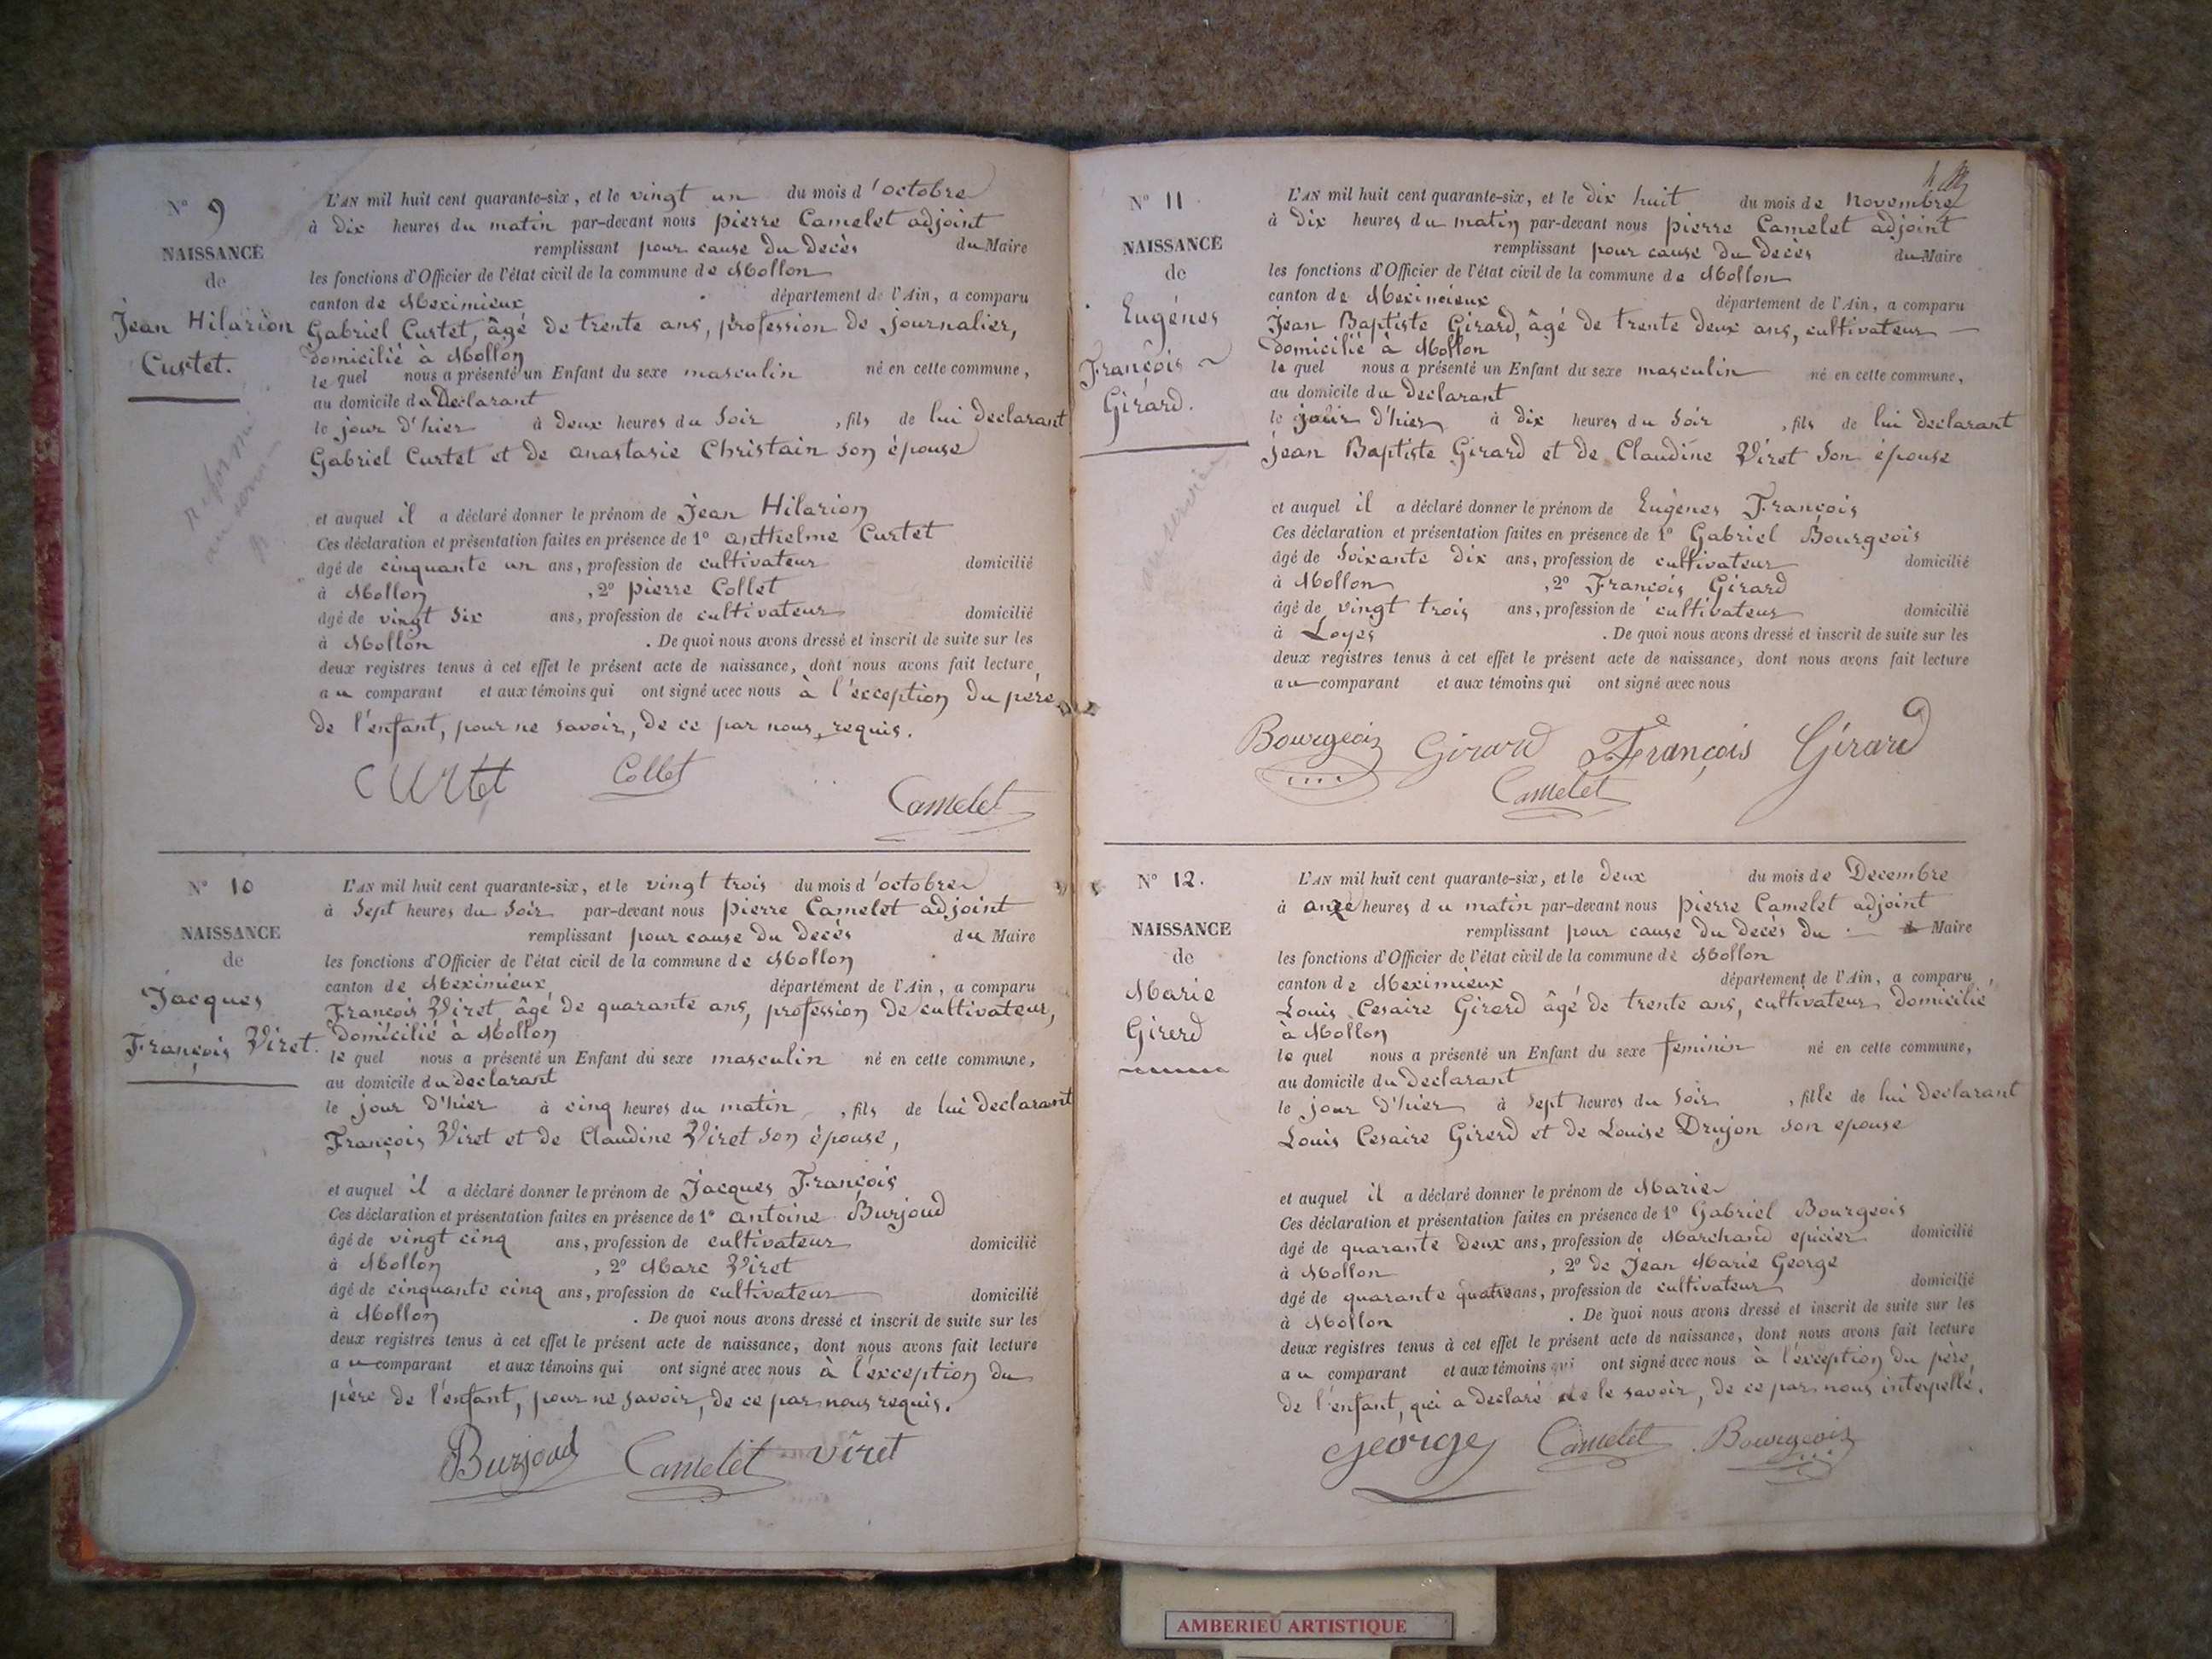 N° 9
NAISSANCE
de
Jean Hilarion
Curtet.
L'AN mil huit cent quarante-six, et le vingt un du mois d'octobre
à dix heures du matin par-devant nous pierre Camelet adjoint
remplissant pour cause du decès du Maire
les fonctions d'Officier de l'état civil de la commune de Mollon
canton de Meximieux département de l'Ain, a comparu
Gabriel Curtet, âgé de trente ans, profession de journalier,
domicilié à Mollon
le quel nous a présenté un Enfant du sexe masculin né en cette commune,
au domicile du Declarant
le jour d'hier à deux heures du soir, fils de lui declarant
Gabriel Curtet et de anastasie Christain son épouse
et auquel il a déclaré donner le prénom de Jean Hilarion
Ces déclaration et présentation faites en présence de 1° anthelme Curtet
âgé de cinquante un ans, profession de cultivateur domicilié
à Mollon, 2° pierre Collet
âgé de vingt six ans, profession de cultivateur domicilié
à Mollon. De quoi nous avons dressé et inscrit de suite sur les
deux registres tenus à cet effet le présent acte de naissance, dont nous avons fait lecture
au comparant et aux témoins qui ont signé avec nous à l'exception du père
de l'enfant, pour ne savoir, de ce par nous requis.
Curtet Collet
Camelet
N° 10
NAISSANCE
de
Jacques
François Viret.
L'AN mil huit cent quarante-six, et le vingt trois du mois d'octobre
à sept heures du soir par-devant nous pierre Camelet adjoint
remplissant pour cause du decès du Maire
les fonctions d'Officier de l'état civil de la commune de Mollon
canton de Meximieux département de l'Ain, a comparu
François Viret, âgé de quarante ans, profession de cultivateur,
domicilié à Mollon
le quel nous a présenté un Enfant du sexe masculin né en cette commune,
au domicile du declarant
le jour d'hier à cinq heures du matin, fils de lui declarant
François Viret et de Claudine Viret son épouse,
et auquel il a déclaré donner le prénom de Jacques François
Ces déclaration et présentation faites en présence de 1° antoine Burjoud
âgé de vingt cinq ans, profession de cultivateur domicilié
à Mollon, 2° Marc Viret
âgé de cinquante cinq ans, profession de cultivateur domicilié
à Mollon. De quoi nous avons dressé et inscrit de suite sur les
deux registres tenus à cet effet le présent acte de naissance, dont nous avons fait lecture
au comparant et aux témoins qui ont signé avec nous à l'exception du
père de l'enfant, pour ne savoir, de ce par nous requis.
Burjoud Camelet viret
N° 11
NAISSANCE
de
Eugénes
François
Girard.
L'AN mil huit cent quarante-six, et le dix huit du mois de novembre
à dix heures du matin par-devant nous pierre Camelet adjoint
remplissant pour cause du decès du Maire
les fonctions d'Officier de l'état civil de la commune de Mollon
canton de Meximieux département de l'Ain, a comparu
Jean Baptiste Girard, âgé de trente deux ans, cultivateur
domicilié à Mollon
le quel nous a présenté un Enfant du sexe masculin né en cette commune,
au domicile du declarant
le jour d'hier à dix heures du soir, fils de lui declarant
jean Baptiste Girard et de Claudine Viret son épouse
et auquel il a déclaré donner le prénom de Eugénes François
Ces déclaration et présentation faites en présence de 1° Gabriel Bourgeois
âgé de soixante dix ans, profession de cultivateur domicilié
à Mollon, 2° François Girard
âgé de vingt trois ans, profession de cultivateur domicilié
à Loyes. De quoi nous avons dressé et inscrit de suite sur les
deux registres tenus à cet effet le présent acte de naissance, dont nous avons fait lecture
au comparant et aux témoins qui ont signé avec nous
Bourgeois Girard François Girard
Camelet
N° 12.
NAISSANCE
de
Marie
Girerd
L'AN mil huit cent quarante-six, et le deux du mois de Decembre
à onze heures du matin par-devant nous pierre Camelet adjoint
remplissant pour cause du decès du Maire
les fonctions d'Officier de l'état civil de la commune de Mollon
canton de Meximieux département de l'Ain, a comparu
Louis Cesaire Girerd âgé de trente ans, cultivateur domicilié
à Mollon
le quel nous a présenté un Enfant du sexe feminin né en cette commune,
au domicile du declarant
le jour d'hier à sept heures du soir, fille de lui declarant
Louis Cesaire Girerd et de Louise Drujon son epouse
et auquel il a déclaré donner le prénom de Marie
Ces déclaration et présentation faites en présence de 1° Gabriel Bourgeois
âgé de quarante deux ans, profession de Marchand epicier domicilié
à Mollon, 2° de Jean Marie George
âgé de quarante quatre ans, profession de cultivateur domicilié
à Mollon. De quoi nous avons dressé et inscrit de suite sur les
deux registres tenus à cet effet le présent acte de naissance, dont nous avons fait lecture
au comparant et aux témoins qui ont signé avec nous à l'exception du père
de l'enfant, qui a declaré ne le savoir, de ce par nous interpellé.
George Camelet Bourgeois
AMBERIEU ARTISTIQUE